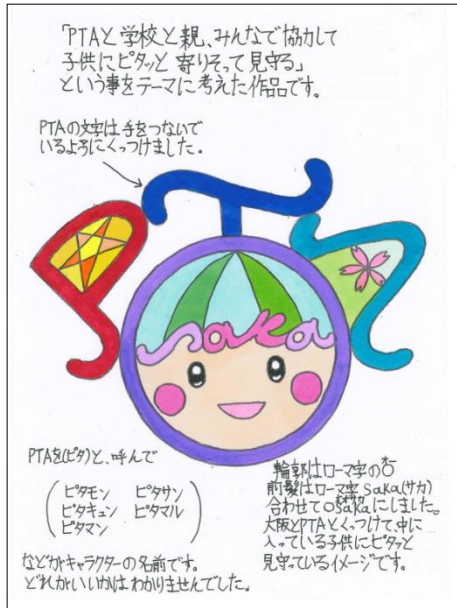 「PTAと学校と親、みんなで協力して
子供にピタッと寄りそって見守る」
という事をテーマに考えた作品です。
PTAの文字は手をつないで
いるようにくっつけました。
PTA
saka
PTAを(ピタ)と、呼んで
ピタモン ピタサン
ピタキュン ピタマル
ピタマン
などがキャラクターの名前です。
どれがいいかはわかりませんでした。
輪郭はローマ字のO
前髪はローマ字saka(サカ)
合わせてosakaにしました。
大阪とPTAとくっつけて、中に
入っている子供にピタッと
見守っているイメージです。